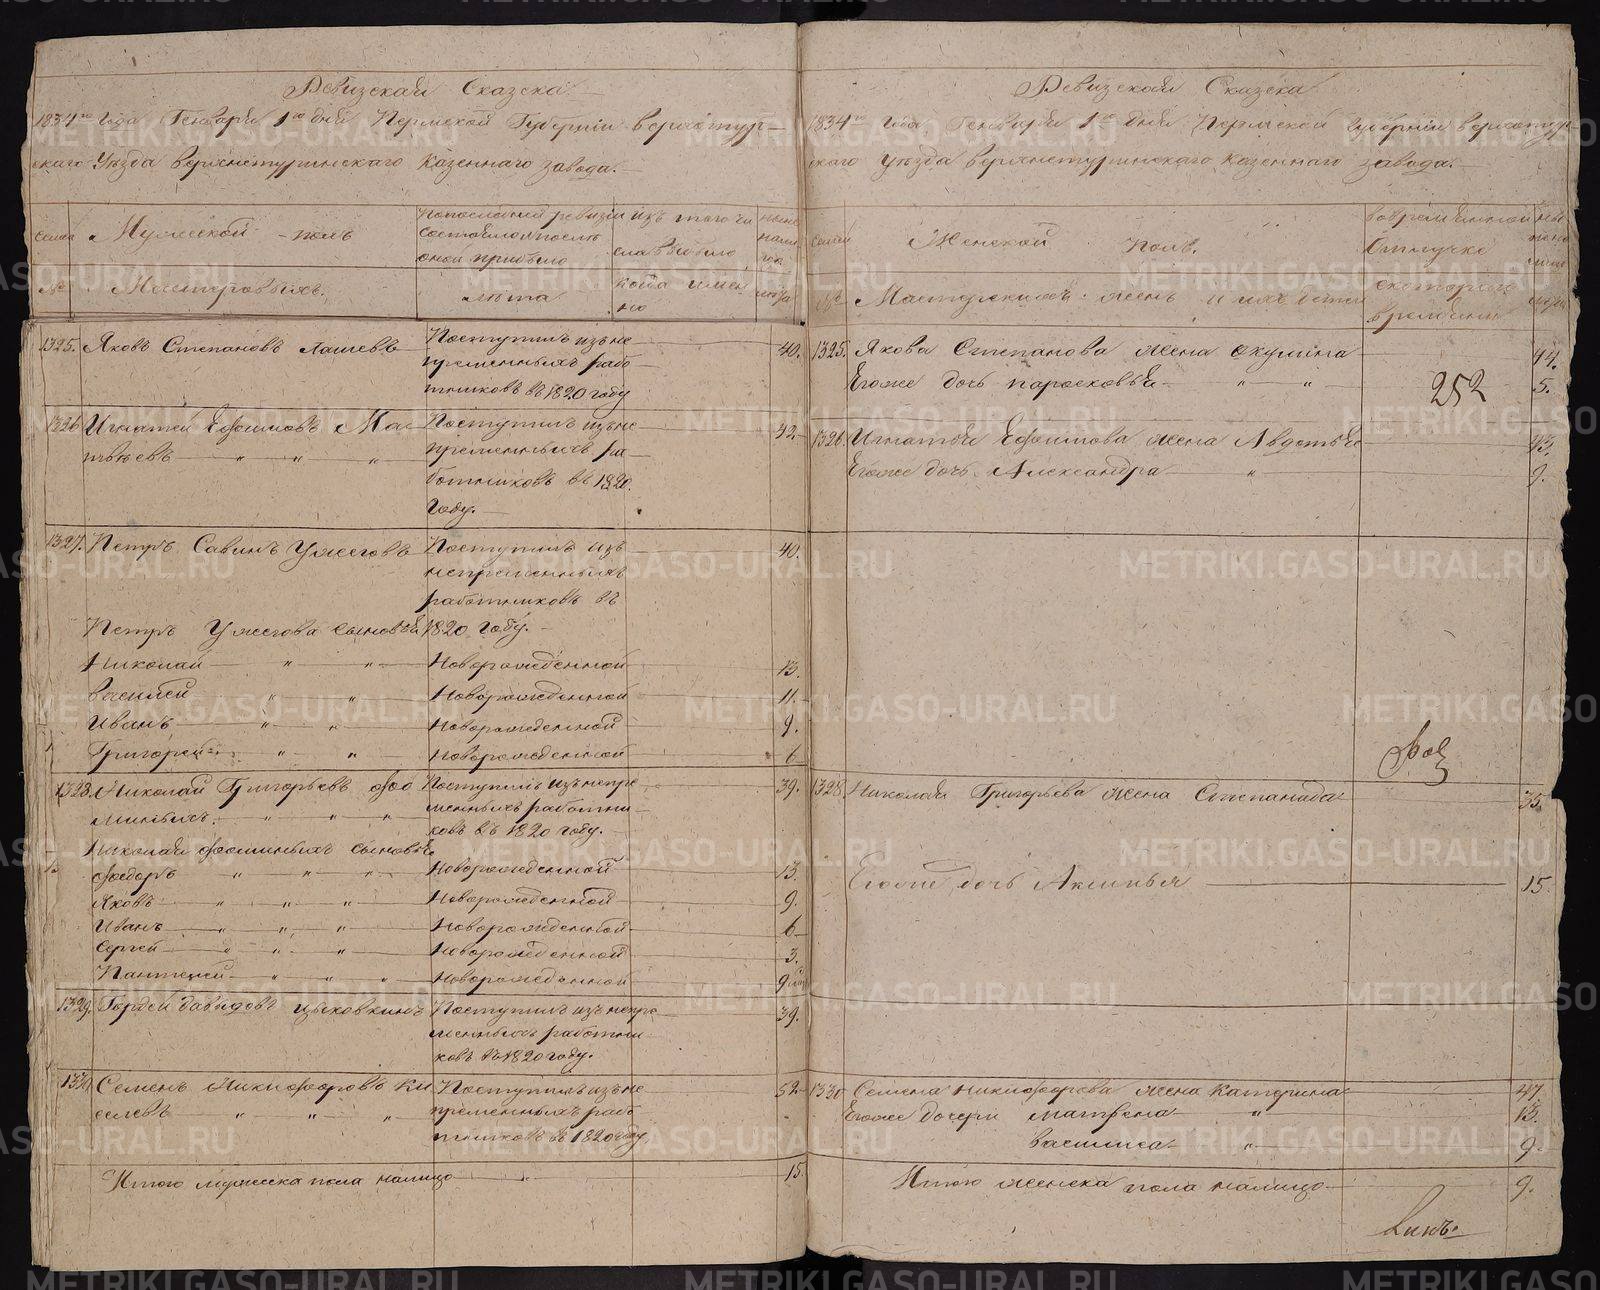 Ревизская Сказска
1834го года Генваря 1го дня Пермской Губернии верхотур-
скаго Уезда верхнетуринскаго казеннаго завода.
Семьи
Мужеской полъ
По последней ревизии состояло и после оной прибыло
изъ того числа выбыло
ныне налицо
№
Мастеровыхъ.
лета
когда именно
лета
1325. Яковъ Степановъ Лашевъ
Поступилъ изъ не-
пременныхъ рабо-
тниковъ въ 1820 году
40.
1326 Игнатей Ефимовъ Ма-
твеевъ " " "
Поступилъ изъ не
пременныхъ ра-
ботниковъ въ 1820.
году.
42.
1327. Петръ Савинъ Ужеговъ
Поступилъ изъ
непременныхъ
работниковъ въ
1820 году.
40.
Петръ Ужегова сыновья
Николай " " Новорожденной 13.
Василей " " Новорожденной 11.
Иванъ " " Новорожденной 9.
Григорей " " Новорожденной 6
1328. Николай Григорьевъ Фо
миныхъ. " " "
Поступилъ изъ непре
менныхъ работни-
ковъ въ 1820 году.
39.
Николая Фоминыхъ сыновья
Федоръ " " " Новорожденной 13.
Яковъ " " " Новорожденной 9.
Иванъ " " " Новорожденной 6
Сергей " " " Новорожденной 3.
Пантелей " " " Новорожденной 9
1329. Гордей Давыдовъ Цыковкинъ
Поступилъ изъ непре
менныхъ работни-
ковъ въ 1820 году.
39.
1330 Семенъ Никифоровъ Ки
селевъ " " "
Поступилъ изъ не
пременныхъ рабо
тниковъ въ 1820 году.
52
Итого мужеска пола налицо 15.
Ревизская Сказска
1834го года Генваря 1го дня Пермской Губернии верхотур-
скаго Уезда верхнетуринскаго казеннаго завода.
семьи
Женской полъ.
во временной отлучке
ныне налицо
№
Мастерскихъ женъ и ихъ детей
с котораго времени
лета
1325. Якова Степанова жена Окулина 44.
Егоже дочь Парасковья " " 5.
252
1326. Игнатья Ефимова жена Авдотья 43.
Егоже дочь Александра " 9.
1328. Николая Григорьева жена Степанида 35.
Егоже дочь Аксинья 15.
1330 Семена Никифорова жена Катерина 47.
Егоже дочери Матрена " 13.
Василиса " 9.
Итого женска пола налицо 9.
METRIKI.GASO-URAL.RU